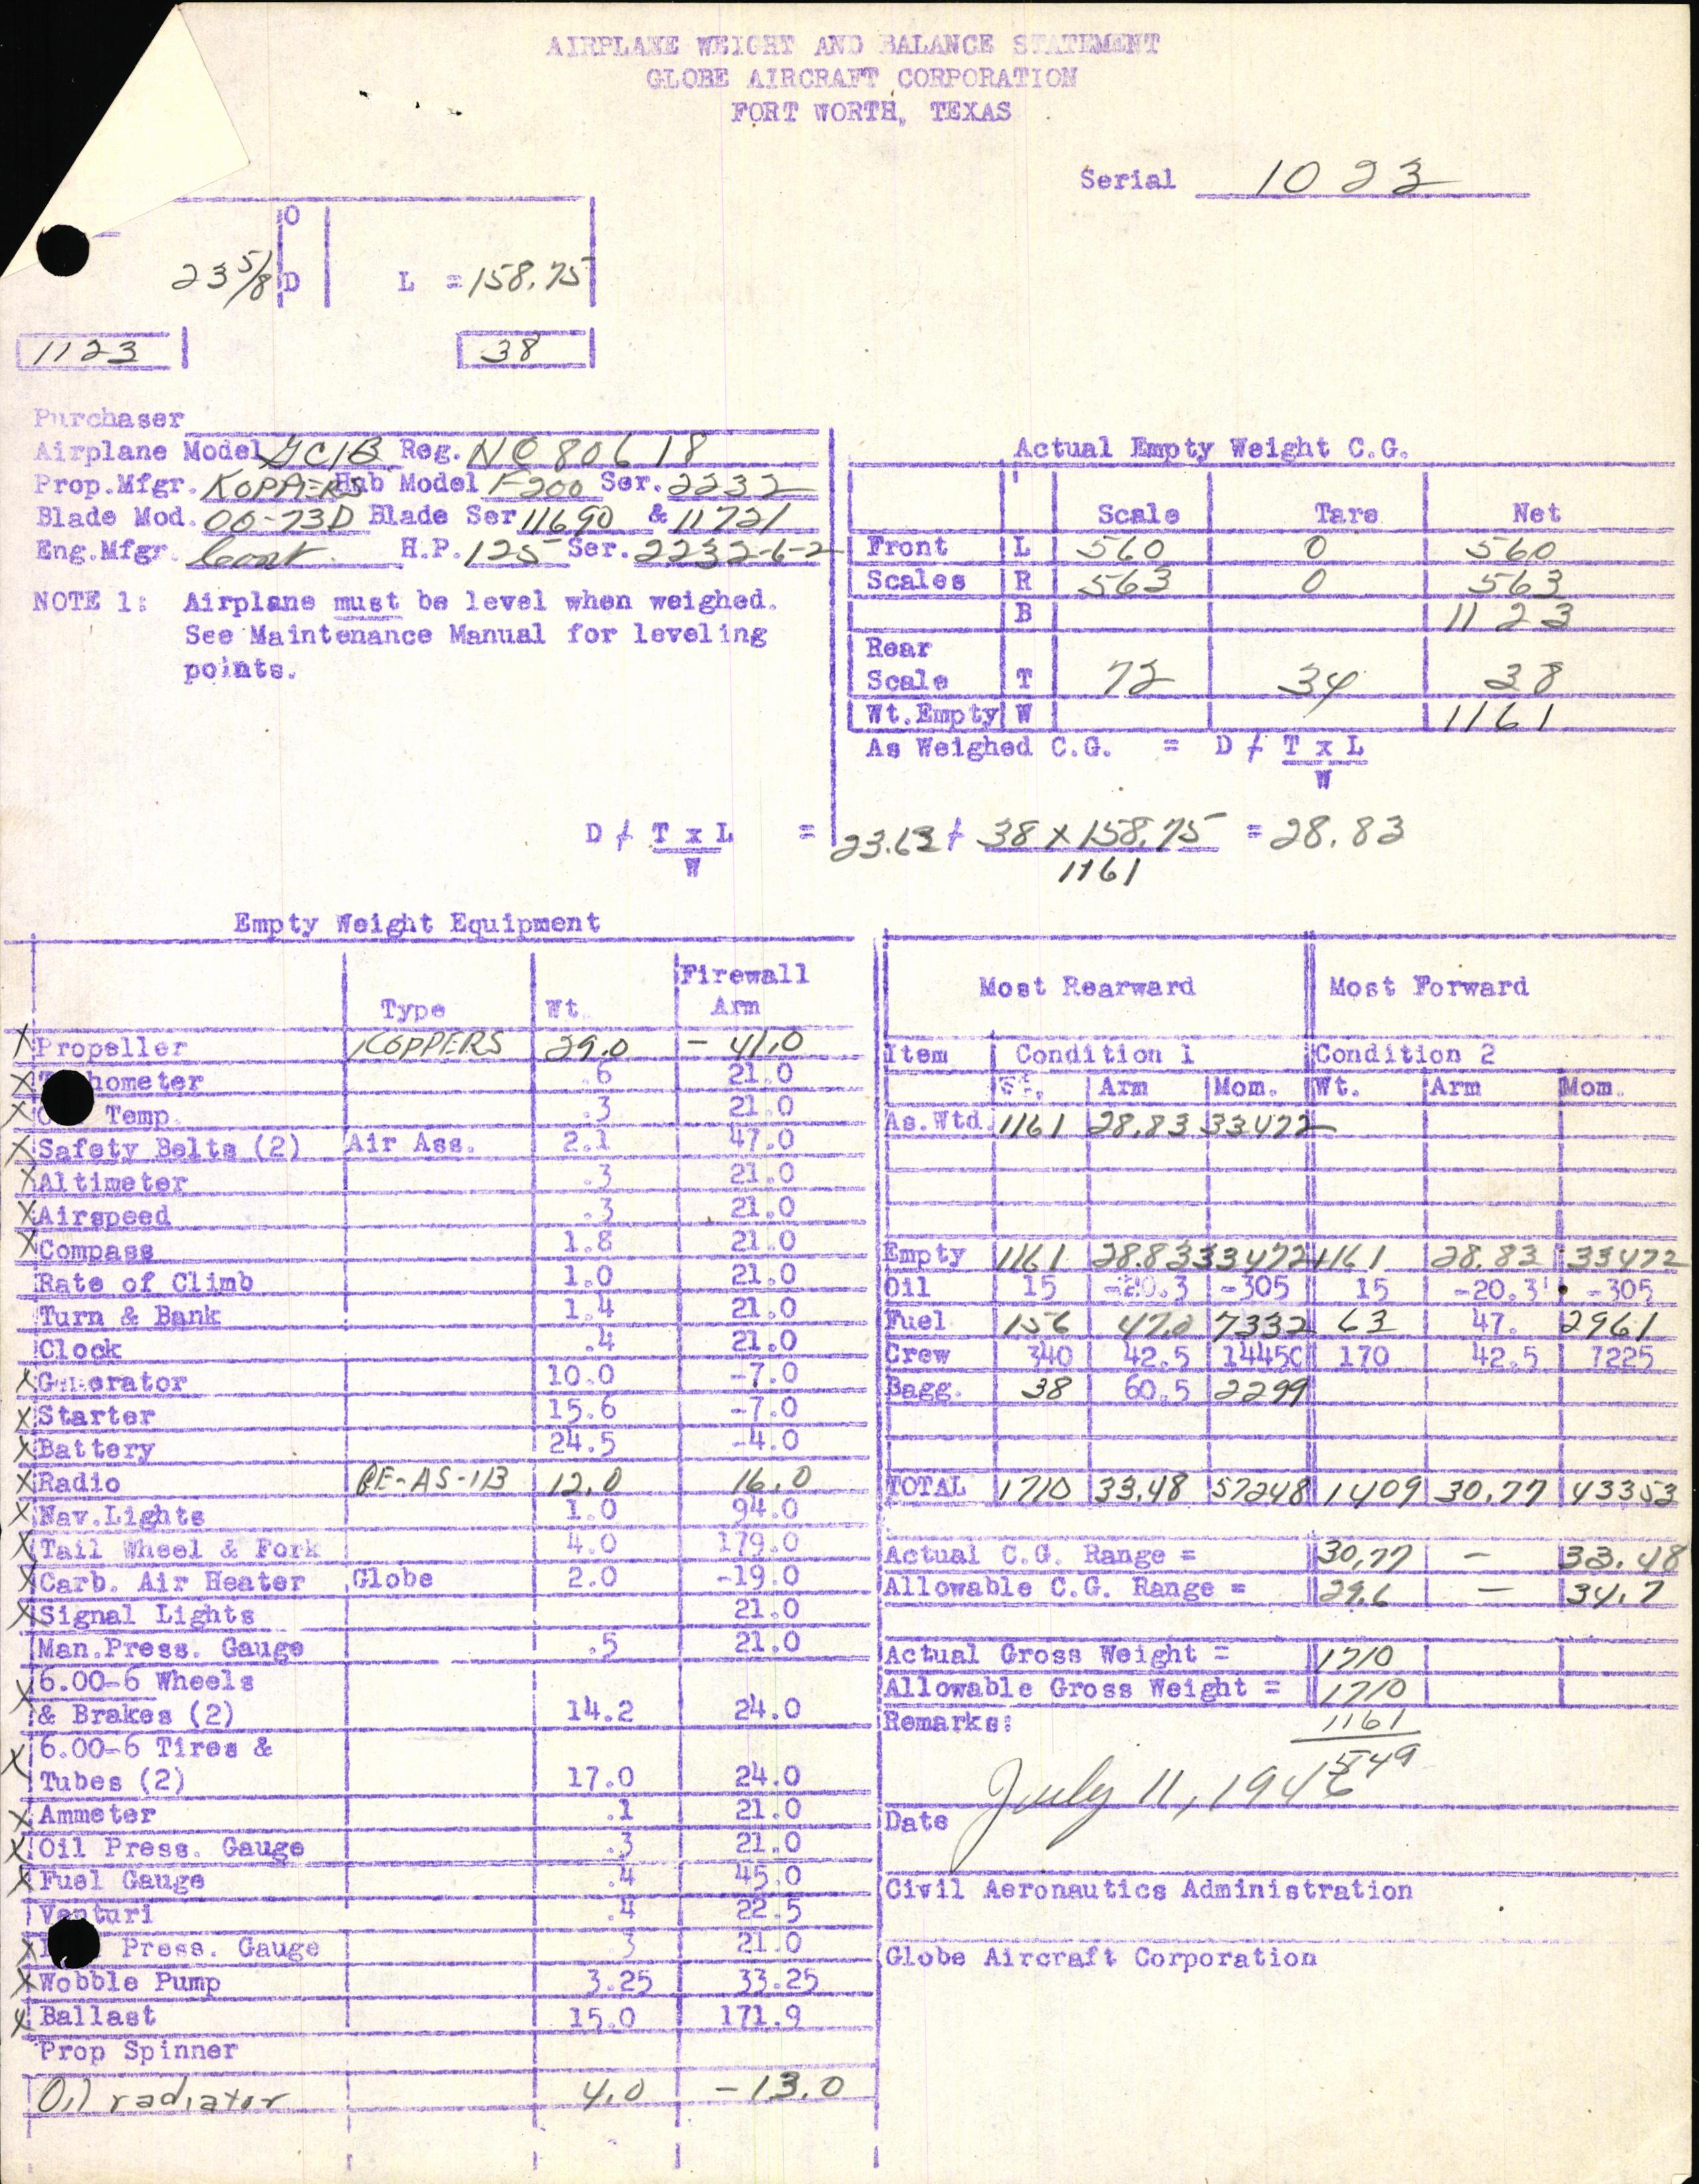 AIRPLANE WEIGHT AND BALANCE STATEMENT
GLOBE AIRCRAFT CORPORATION
FORT WORTH, TEXAS
Serial 1023
O
23 5/8 D L = 158.75
1123 38
Purchaser
Airplane Model GC1B Reg. NC 80618
Prop.Mfgr. KOPPERS Hub Model F-200 Ser. 2232
Blade Mod. 00-73D Blade Ser 11690 & 11721
Eng.Mfgr. Cont. H.P. 125 Ser. 2232-6-2
NOTE 1: Airplane must be level when weighed.
See Maintenance Manual for leveling
points.
Actual Empty Weight C.G.
Scale Tare Net
Front L 560 0 560
Scales R 563 0 563
B 1123
Rear
Scale T 72 34 38
Wt.Empty W 1161
As Weighed C.G. = D + T x L
W
D + T x L = 23.63 + 38 x 158.75 = 28.83
W 1161
Empty Weight Equipment
Type Wt. Firewall Arm
X Propeller KOPPERS 29.0 - 41.0
X hometer .6 21.0
X Temp. .3 21.0
X Safety Belts (2) Air Ass. 2.1 47.0
X Altimeter .3 21.0
X Airspeed .3 21.0
X Compass 1.8 21.0
Rate of Climb 1.0 21.0
Turn & Bank 1.4 21.0
Clock .4 21.0
X Generator 10.0 -7.0
X Starter 15.6 -7.0
X Battery 24.5 -4.0
X Radio GE-AS-1B 12.0 16.0
X Nav.Lights 1.0 94.0
X Tail Wheel & Fork 4.0 179.0
X Carb. Air Heater Globe 2.0 -19.0
X Signal Lights 21.0
Man.Press. Gauge .5 21.0
X 6.00-6 Wheels
& Brakes (2) 14.2 24.0
X 6.00-6 Tires &
Tubes (2) 17.0 24.0
X Ammeter .1 21.0
X Oil Press. Gauge .3 21.0
X Fuel Gauge .4 45.0
Venturi .4 22.5
X Press. Gauge .3 21.0
X Wobble Pump 3.25 33.25
X Ballast 15.0 171.9
Prop Spinner
Oil radiator 4.0 -13.0
Most Rearward Most Forward
Item Condition 1 Condition 2
Wt. Arm Mom. Wt. Arm Mom.
As.Wtd. 1161 28.83 33472
Empty 1161 28.83 33472 1161 28.83 33472
Oil 15 -20.3 -305 15 -20.3 -305
Fuel 156 47.0 7332 63 47. 2961
Crew 340 42.5 14450 170 42.5 7225
Bagg. 38 60.5 2299
TOTAL 1710 33.48 57248 1409 30.77 43353
Actual C.G. Range = 30.77 — 33.48
Allowable C.G. Range = 29.6 — 34.7
Actual Gross Weight = 1710
Allowable Gross Weight = 1710
Remarks: 1161
549
July 11, 1946
Date
Civil Aeronautics Administration
Globe Aircraft Corporation